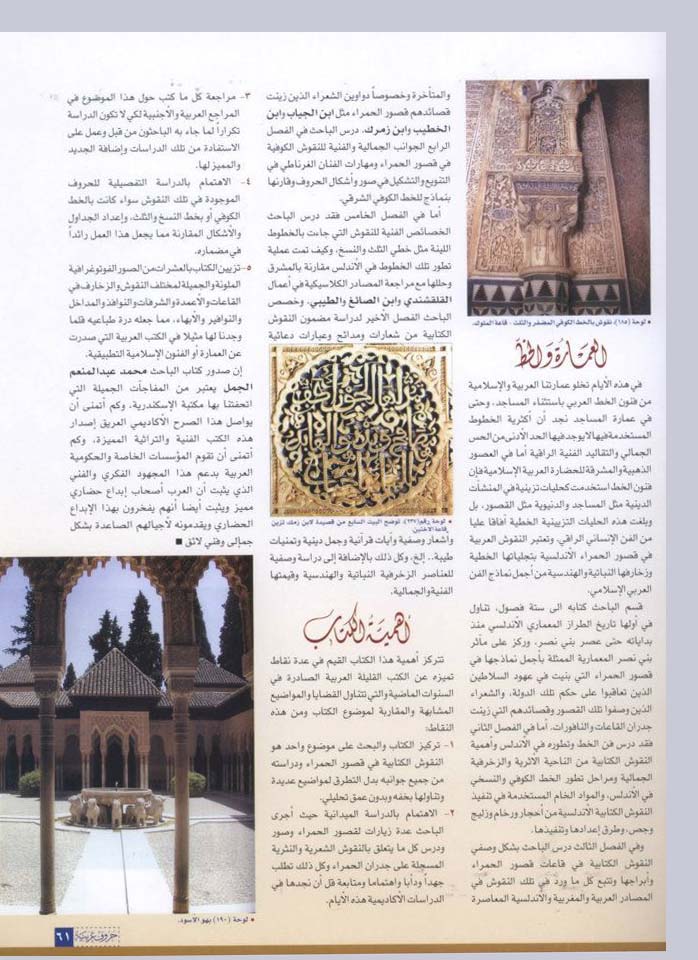 • لوحة (١٨٥)، نقوش بالخط الكوفي المضفر والثلث - قاعة الملوك.
العمارة والخط
في هذه الأيام تخلو عمارتنا العربية والإسلامية
من فنون الخط العربي باستثناء المساجد، وحتى
في عمارة المساجد نجد أن أكثرية الخطوط
المستخدمة فيها لا يوجد فيها الحد الأدنى من الحس
الجمالي والتقاليد الفنية الراقية أما في العصور
الذهبية والمشرقة للحضارة العربية الإسلامية فإن
فنون الخط استخدمت كحليات تزينية في المنشآت
الدينية مثل المساجد والدنيوية مثل القصور، بل
وبلغت هذه الحليات التزيينية الخطية آفاقا عليا
من الفن الإنساني الراقي، وتعتبر النقوش العربية
في قصور الحمراء الأندلسية بتجلياتها الخطية
وزخارفها النباتية والهندسية من أجمل نماذج الفن
العربي الإسلامي.
قسم الباحث كتابه الى ستة فصول، تناول
في أولها تاريخ الطراز المعماري الأندلسي منذ
بداياته حتى عصر بني نصر، وركز على مآثر
بني نصر المعمارية الممثلة بأجمل نماذجها في
قصور الحمراء التي بنيت في عهود السلاطين
الذين تعاقبوا على حكم تلك الدولة، والشعراء
الذين وصفوا تلك القصور وقصائدهم التي زينت
جدران القاعات والنافورات. أما في الفصل الثاني
فقد درس فن الخط وتطوره في الأندلس وأهمية
النقوش الكتابية من الناحية الاثرية والزخرفية
الجمالية ومراحل تطور الخط الكوفي والنسخي
في الاندلس، والمواد الخام المستخدمة في تنفيذ
النقوش الكتابية الأندلسية من أحجار ورخام وزليج
وجص، وطرق إعدادها وتنفيذها.
وفي الفصل الثالث درس الباحث بشكل وصفي
النقوش الكتابية في قاعات قصور الحمراء
وأبراجها وتتبع كل ما ورد في تلك النقوش في
المصادر العربية والمغربية والأندلسية المعاصرة
والمتأخرة وخصوصاً دواوين الشعراء الذين زينت
قصائدهم قصور الحمراء مثل ابن الجياب وابن
الخطيب وابن زمرك. درس الباحث في الفصل
الرابع الجوانب الجمالية والفنية للنقوش الكوفية
في قصور الحمراء ومهارات الفنان الغرناطي في
التنويع والتشكيل في صور وأشكال الحروف وقارنها
بنماذج للخط الكوفي الشرقي.
أما في الفصل الخامس فقد درس الباحث
الخصائص الفنية للنقوش التي جاءت بالخطوط
اللينة مثل خطي الثلث والنسخ، وكيف تمت عملية
تطور تلك الخطوط في الاندلس مقارنة بالمشرق
وحللها مع مراجعة المصادر الكلاسيكية في أعمال
القلقشندي وابن الصائغ والطيبي. وخصص
الباحث الفصل الأخير لدراسة مضمون النقوش
الكتابية من شعارات ومدائح وعبارات دعائية
• لوحة رقم(٢٣٧)، توضح البيت السابع من قصيدة لابن زمرك تزين
قاعة الاختين.
وأشعار وصفية وآيات قرآنية وجمل دينية وتمنيات
طيبة.. إلخ، وكل ذلك بالإضافة إلى دراسة وصفية
للعناصر الزخرفية النباتية والهندسية وقيمتها
الفنية والجمالية.
أهمية الكتاب
تتركز أهمية هذا الكتاب القيم في عدة نقاط
تميزه عن الكتب القليلة العربية الصادرة في
السنوات الماضية والتي تتناول القضايا والمواضيع
المشابهة والمقاربة لموضوع الكتاب ومن هذه
النقاط:
١- تركيز الكتاب والبحث على موضوع واحد هو
النقوش الكتابية في قصور الحمراء ودراسته
من جميع جوانبه بدل التطرق لمواضيع عديدة
وتناولها بخفه وبدون عمق تحليلي.
٢- الاهتمام بالدراسة الميدانية حيث أجرى
الباحث عدة زيارات لقصور الحمراء وصور
ودرس كل ما يتعلق بالنقوش الشعرية والنثرية
المسجلة على جدران الحمراء وكل ذلك تطلب
جهداً ودأبا واهتماما ومتابعة قل أن نجدها في
الدراسات الأكاديمية هذه الأيام.
٣- مراجعة كل ما كتب حول هذا الموضوع في
المراجع العربية والأجنبية لكي لا تكون الدراسة
تكراراً لما جاء به الباحثون من قبل وعمل على
الاستفادة من تلك الدراسات وإضافة الجديد
والمميز لها.
٤- الاهتمام بالدراسة التفصيلية للحروف
الموجودة في تلك النقوش سواء كانت بالخط
الكوفي أو بخط النسخ والثلث، وإعداد الجداول
والأشكال المقارنة مما يجعل هذا العمل رائداً
في مضماره.
٥- تزيين الكتاب بالعشرات من الصور الفوتوغرافية
الملونة والجميلة لمختلف النقوش والزخارف في
القاعات والأعمدة والشرفات والنوافذ والمداخل
والنوافير والأبهاء، مما جعله درة طباعيه قلما
وجدنا لها مثيلا في الكتب العربية التي صدرت
عن العمارة أو الفنون الإسلامية التطبيقية.
إن صدور كتاب الباحث محمد عبدالمنعم
الجمل يعتبر من المفاجآت الجميلة التي
اتحفتنا بها مكتبة الإسكندرية، وكم أتمنى أن
يواصل هذا الصرح الأكاديمي العريق إصدار
هذه الكتب الفنية والتراثية المميزة، وكم
أتمنى أن تقوم المؤسسات الخاصة والحكومية
العربية بدعم هذا المجهود الفكري والفني
الذي يثبت أن العرب أصحاب إبداع حضاري
مميز ويثبت أيضا أنهم يفخرون بهذا الإبداع
الحضاري ويقدمونه لأجيالهم الصاعدة بشكل
جمالي وفني لائق ■
• لوحة (١٩٠) بهو الاسود.
حروف عربية ٦١